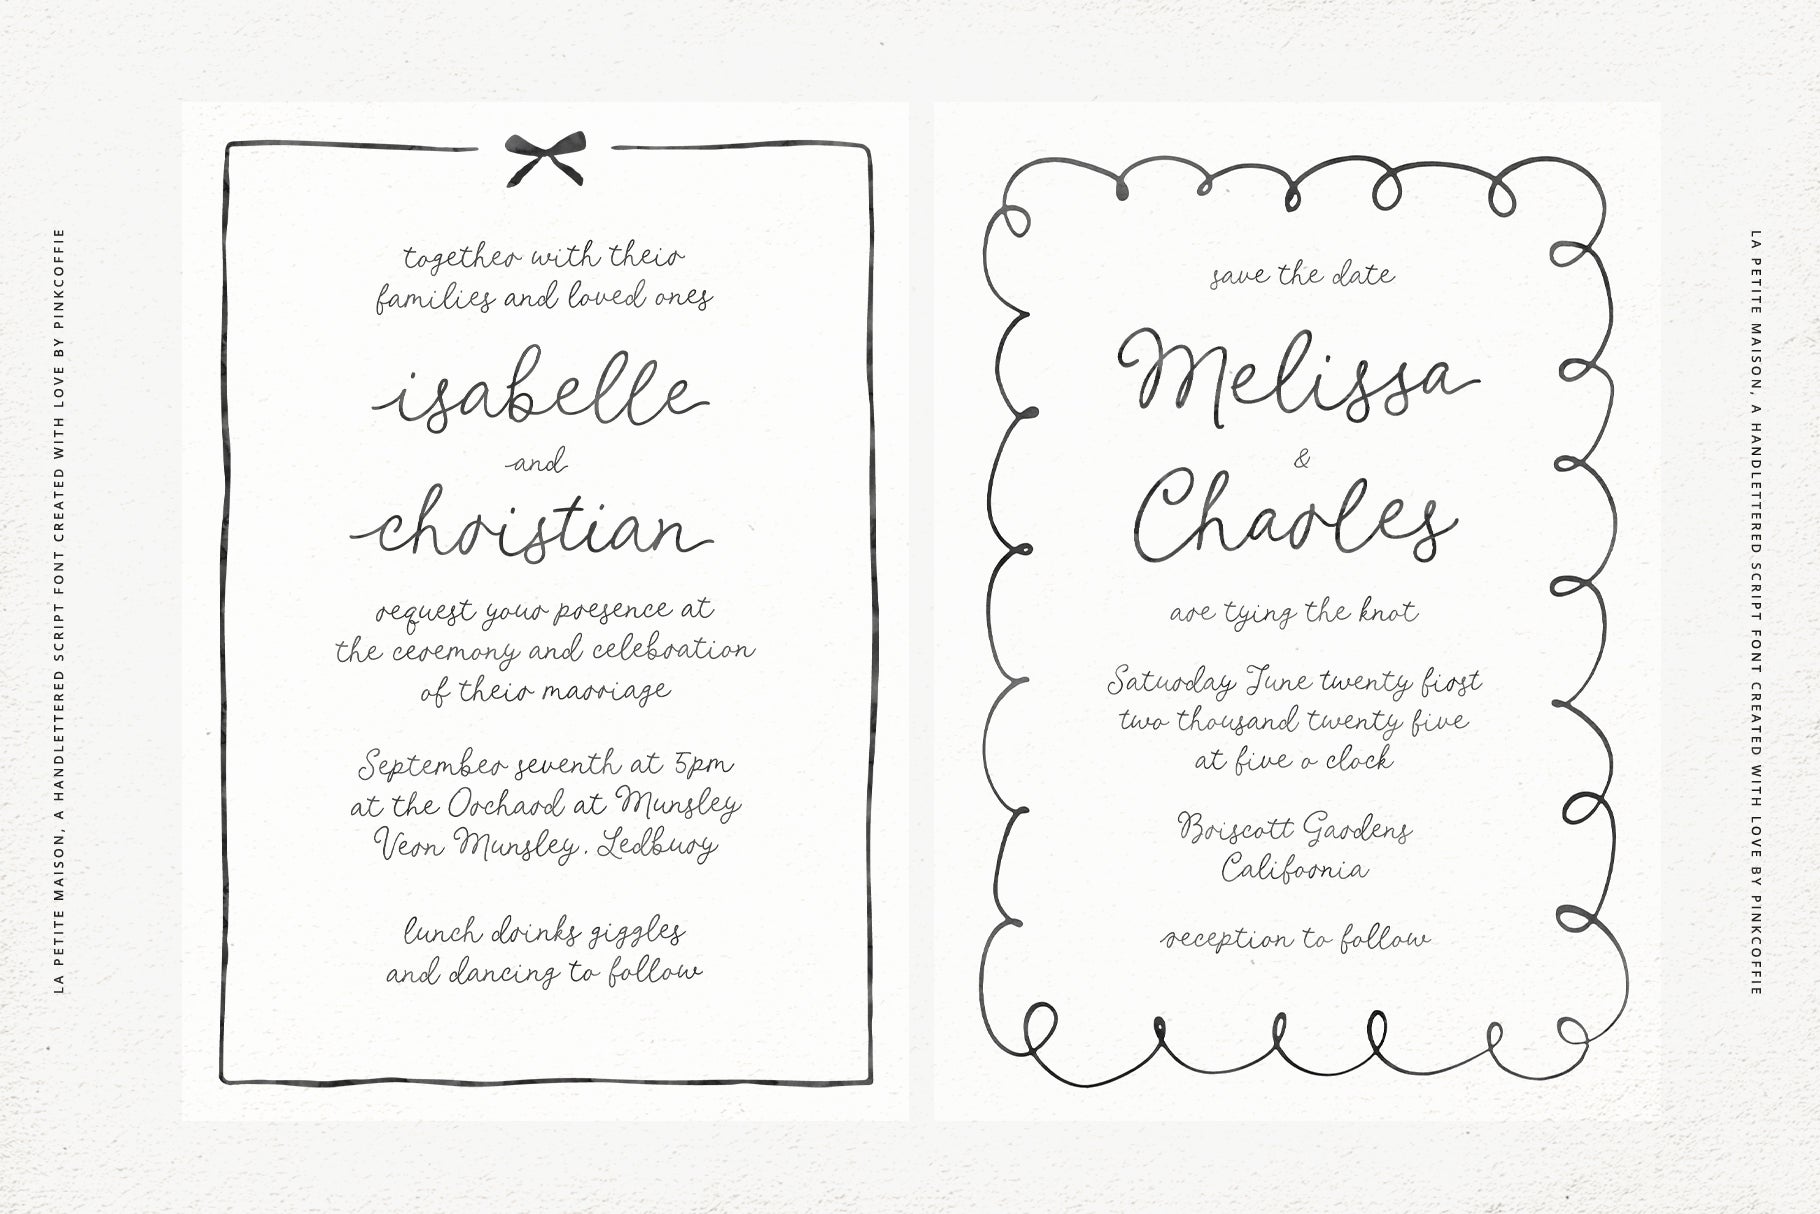 LA PETITE MAISON, A HANDLETTERED SCRIPT FONT CREATED WITH LOVE BY PINKCOFFIE
together with their
families and loved ones
isabelle
and
christian
request your presence at
the ceremony and celebration
of their marriage
September seventh at 5pm
at the Orchard at Munsley
Vern Munsley. Ledbury
lunch drinks giggles
and dancing to follow
save the date
Melissa
&
Charles
are tying the knot
Saturday June twenty first
two thousand twenty five
at five o clock
Boiscott Gardens
California
reception to follow
LA PETITE MAISON, A HANDLETTERED SCRIPT FONT CREATED WITH LOVE BY PINKCOFFIE